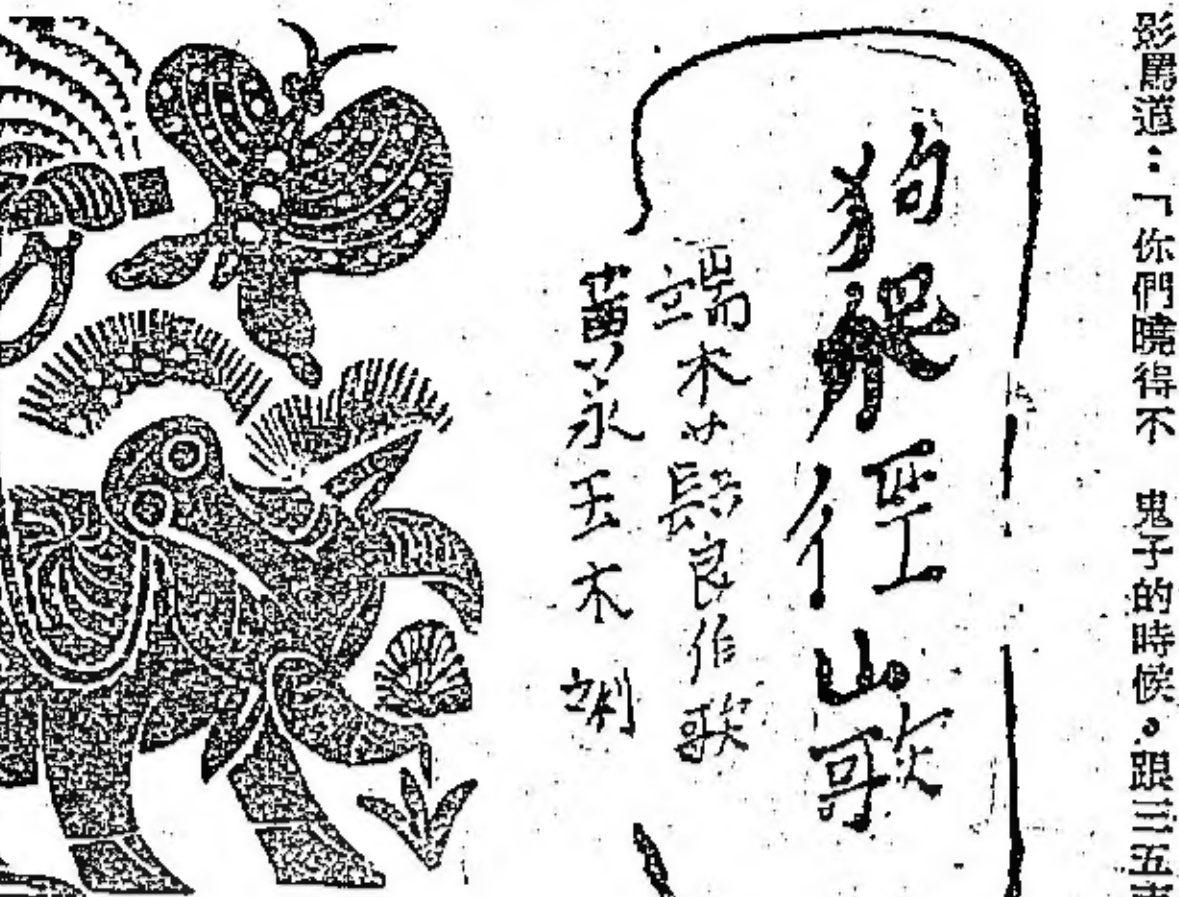 影罵道：「你們曉得不　鬼子的時候。跟三五
狗爬徑山歌
端木蕻良作歌
黄永玉木刻